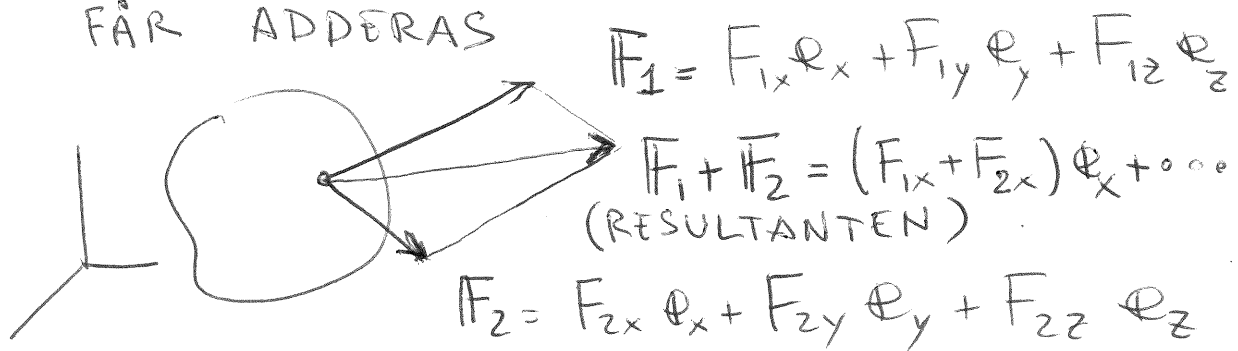 FÅR ADDERAS
𝔽₁ = F₁ₓ𝕖ₓ + F₁y 𝕖y + F₁z 𝕖z
𝔽₁ + 𝔽₂ = (F₁ₓ + F₂ₓ) 𝕖ₓ + ...
(RESULTANTEN)
𝔽₂ = F₂ₓ 𝕖ₓ + F₂y 𝕖y + F₂z 𝕖z